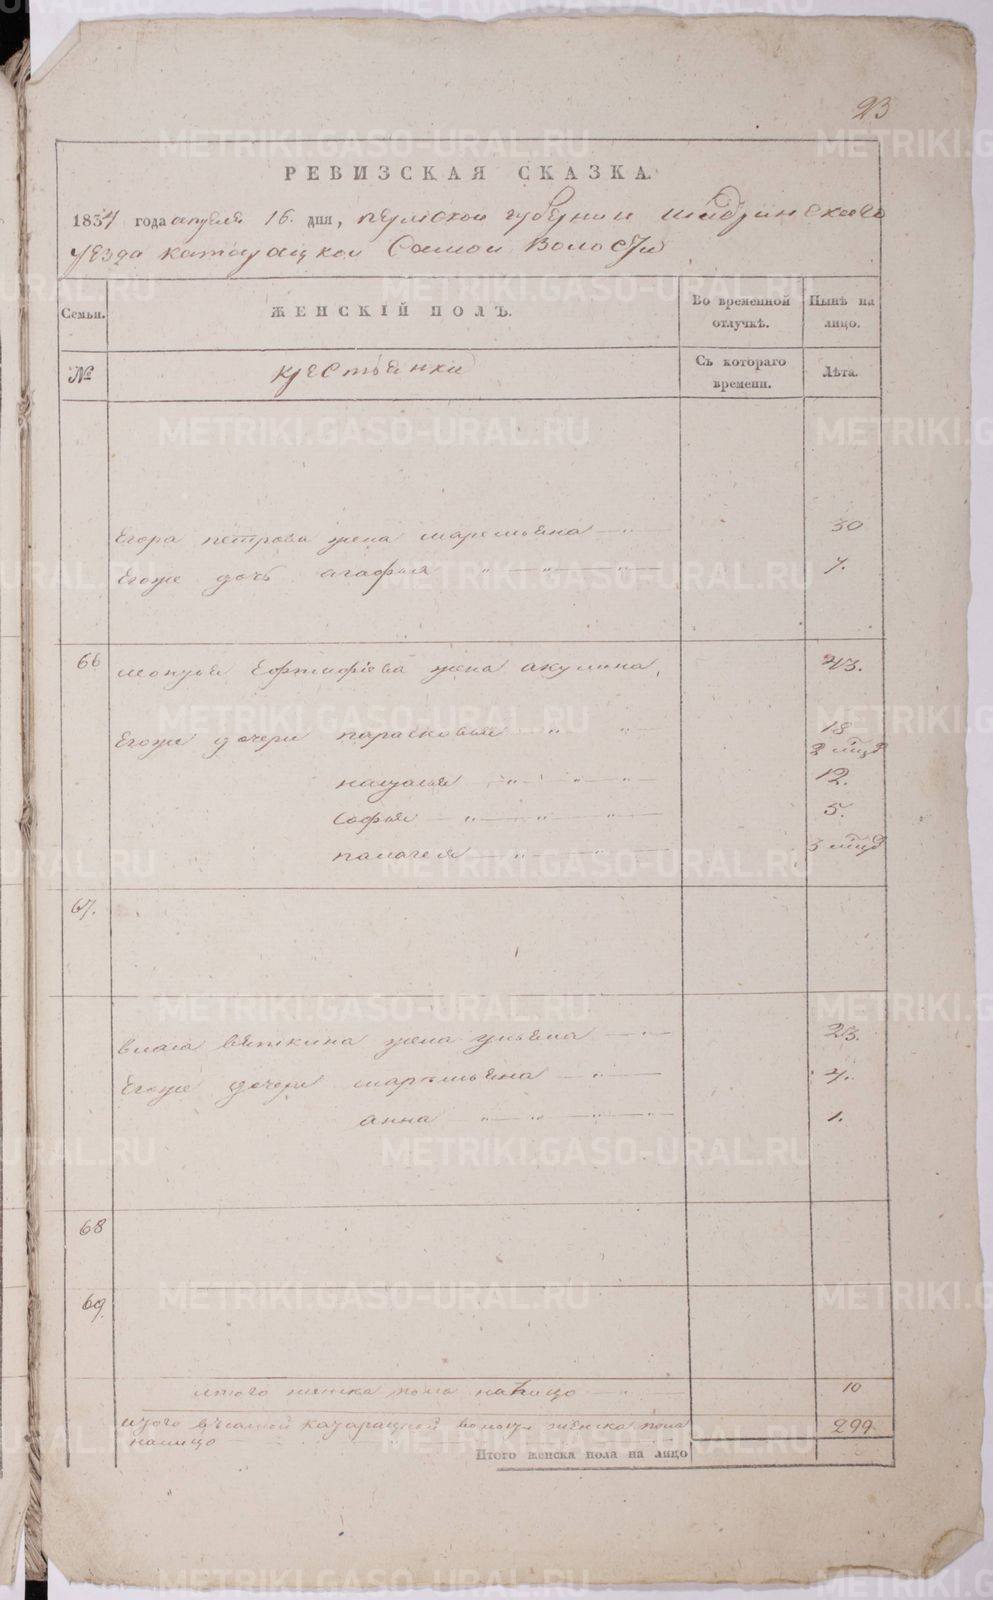 23
РЕВИЗСКАЯ СКАЗКА.
1834 года апреля 16 дня, пермской губернии шадринскаго
уезда катарацкой Самой Волости
Семьи. ЖЕНСКІЙ ПОЛЪ. Во временной отлучкѣ. Нынѣ на лицо.
№ крестьянки Съ котораго времени. Лѣта.
Егора петрова жена маремьяна 30
Егоже дочь агафья 7.
66 жена акулина 43.
Егоже дочери парасковья 18
2 мцъ
наталья 12.
софья 5.
палагея 3 мцъ
67.
вяткина жена ульяна 23.
Егоже дочери маремьяна 4.
анна 1.
68
69
итого женска пола налицо 10
итого въ самой катарацкой волости женска пола 299
налицо
Итого женска пола на лицо
METRIKI.GASO-URAL.RU